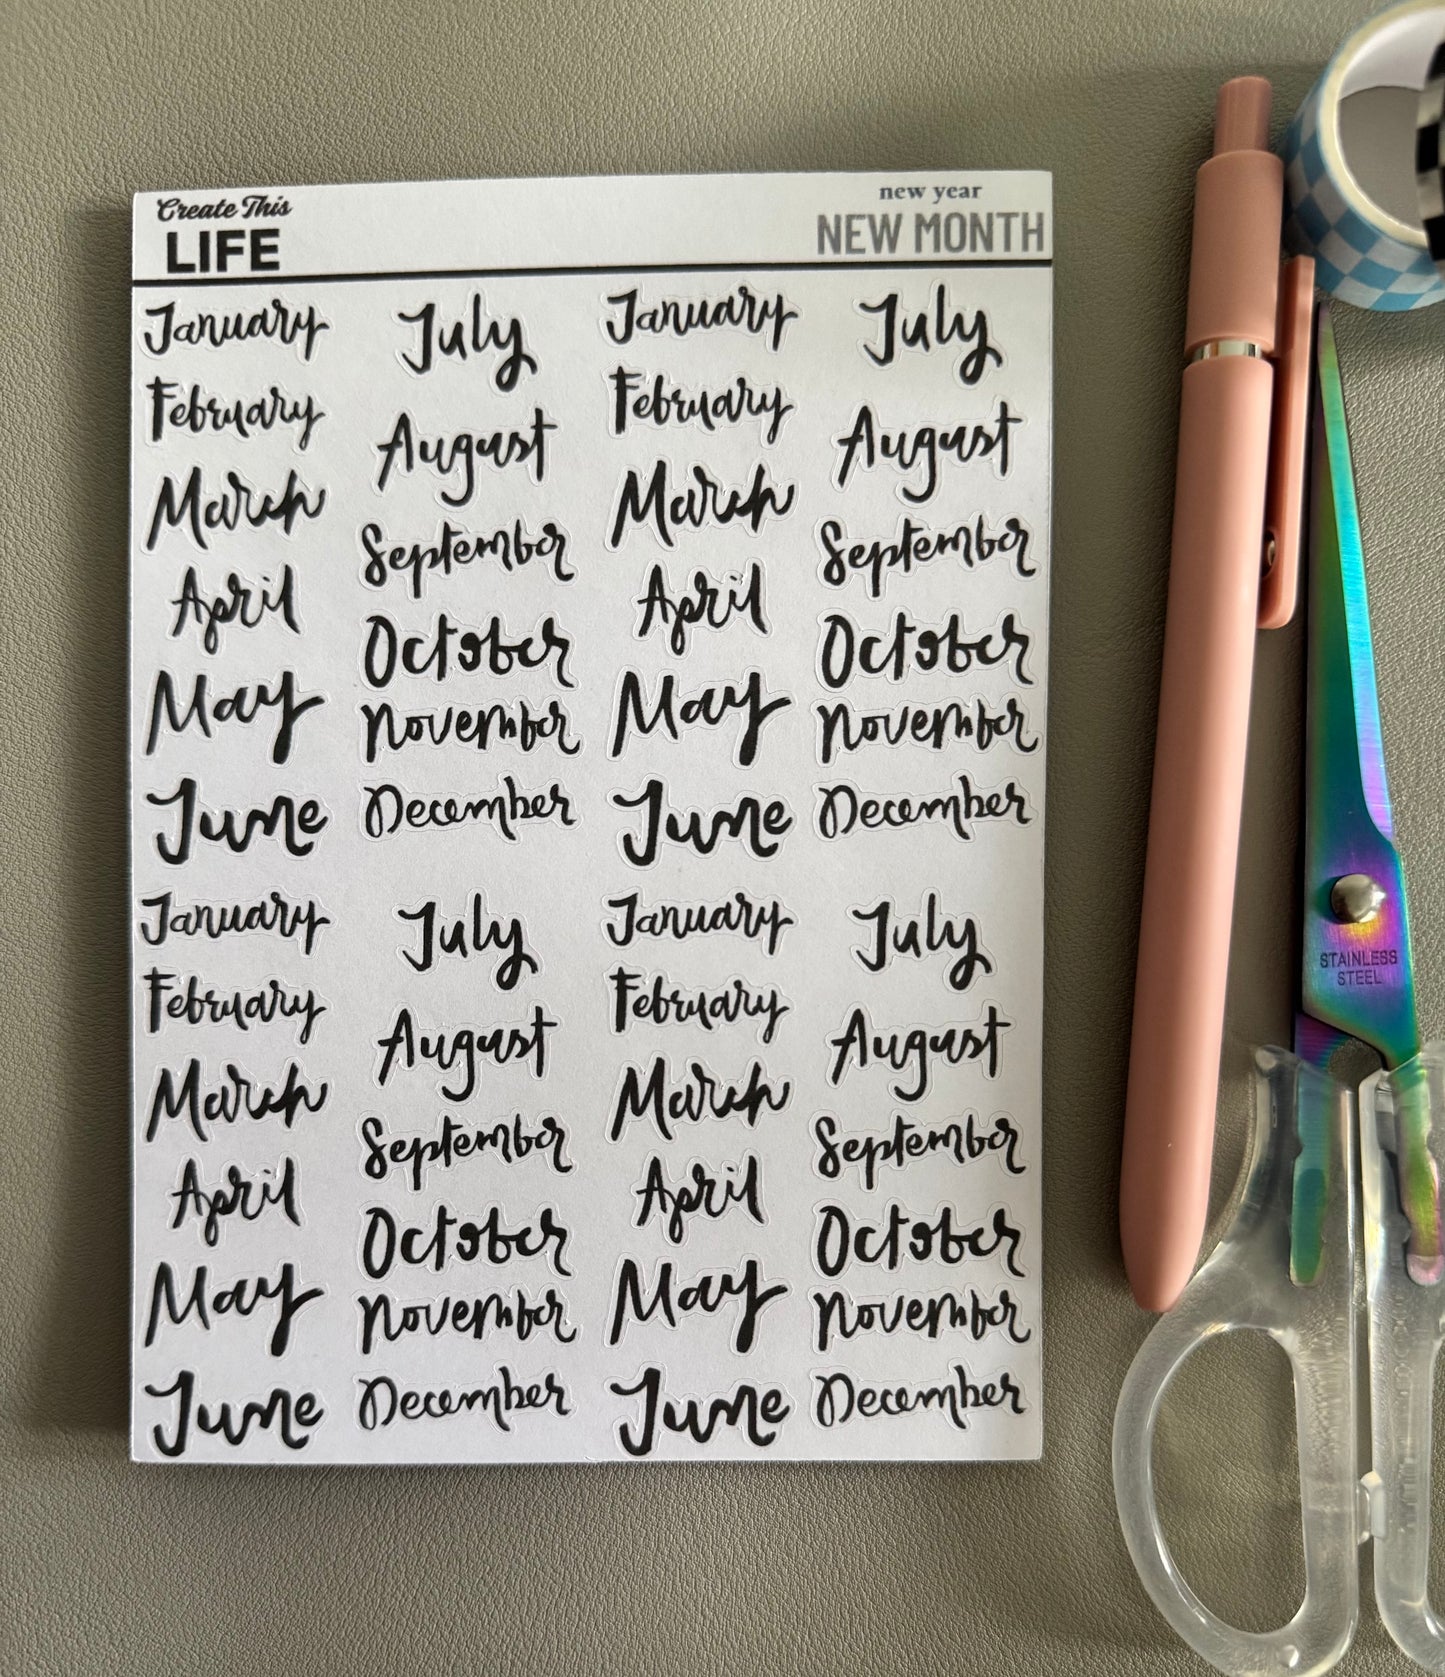 Create This
LIFE
new year
NEW MONTH
January July January July
February August February August
March September March September
April October April October
May November May November
June December June December
January July January July
February August February August
March September March September
April October April October
May November May November
June December June December
STAINLESS
STEEL